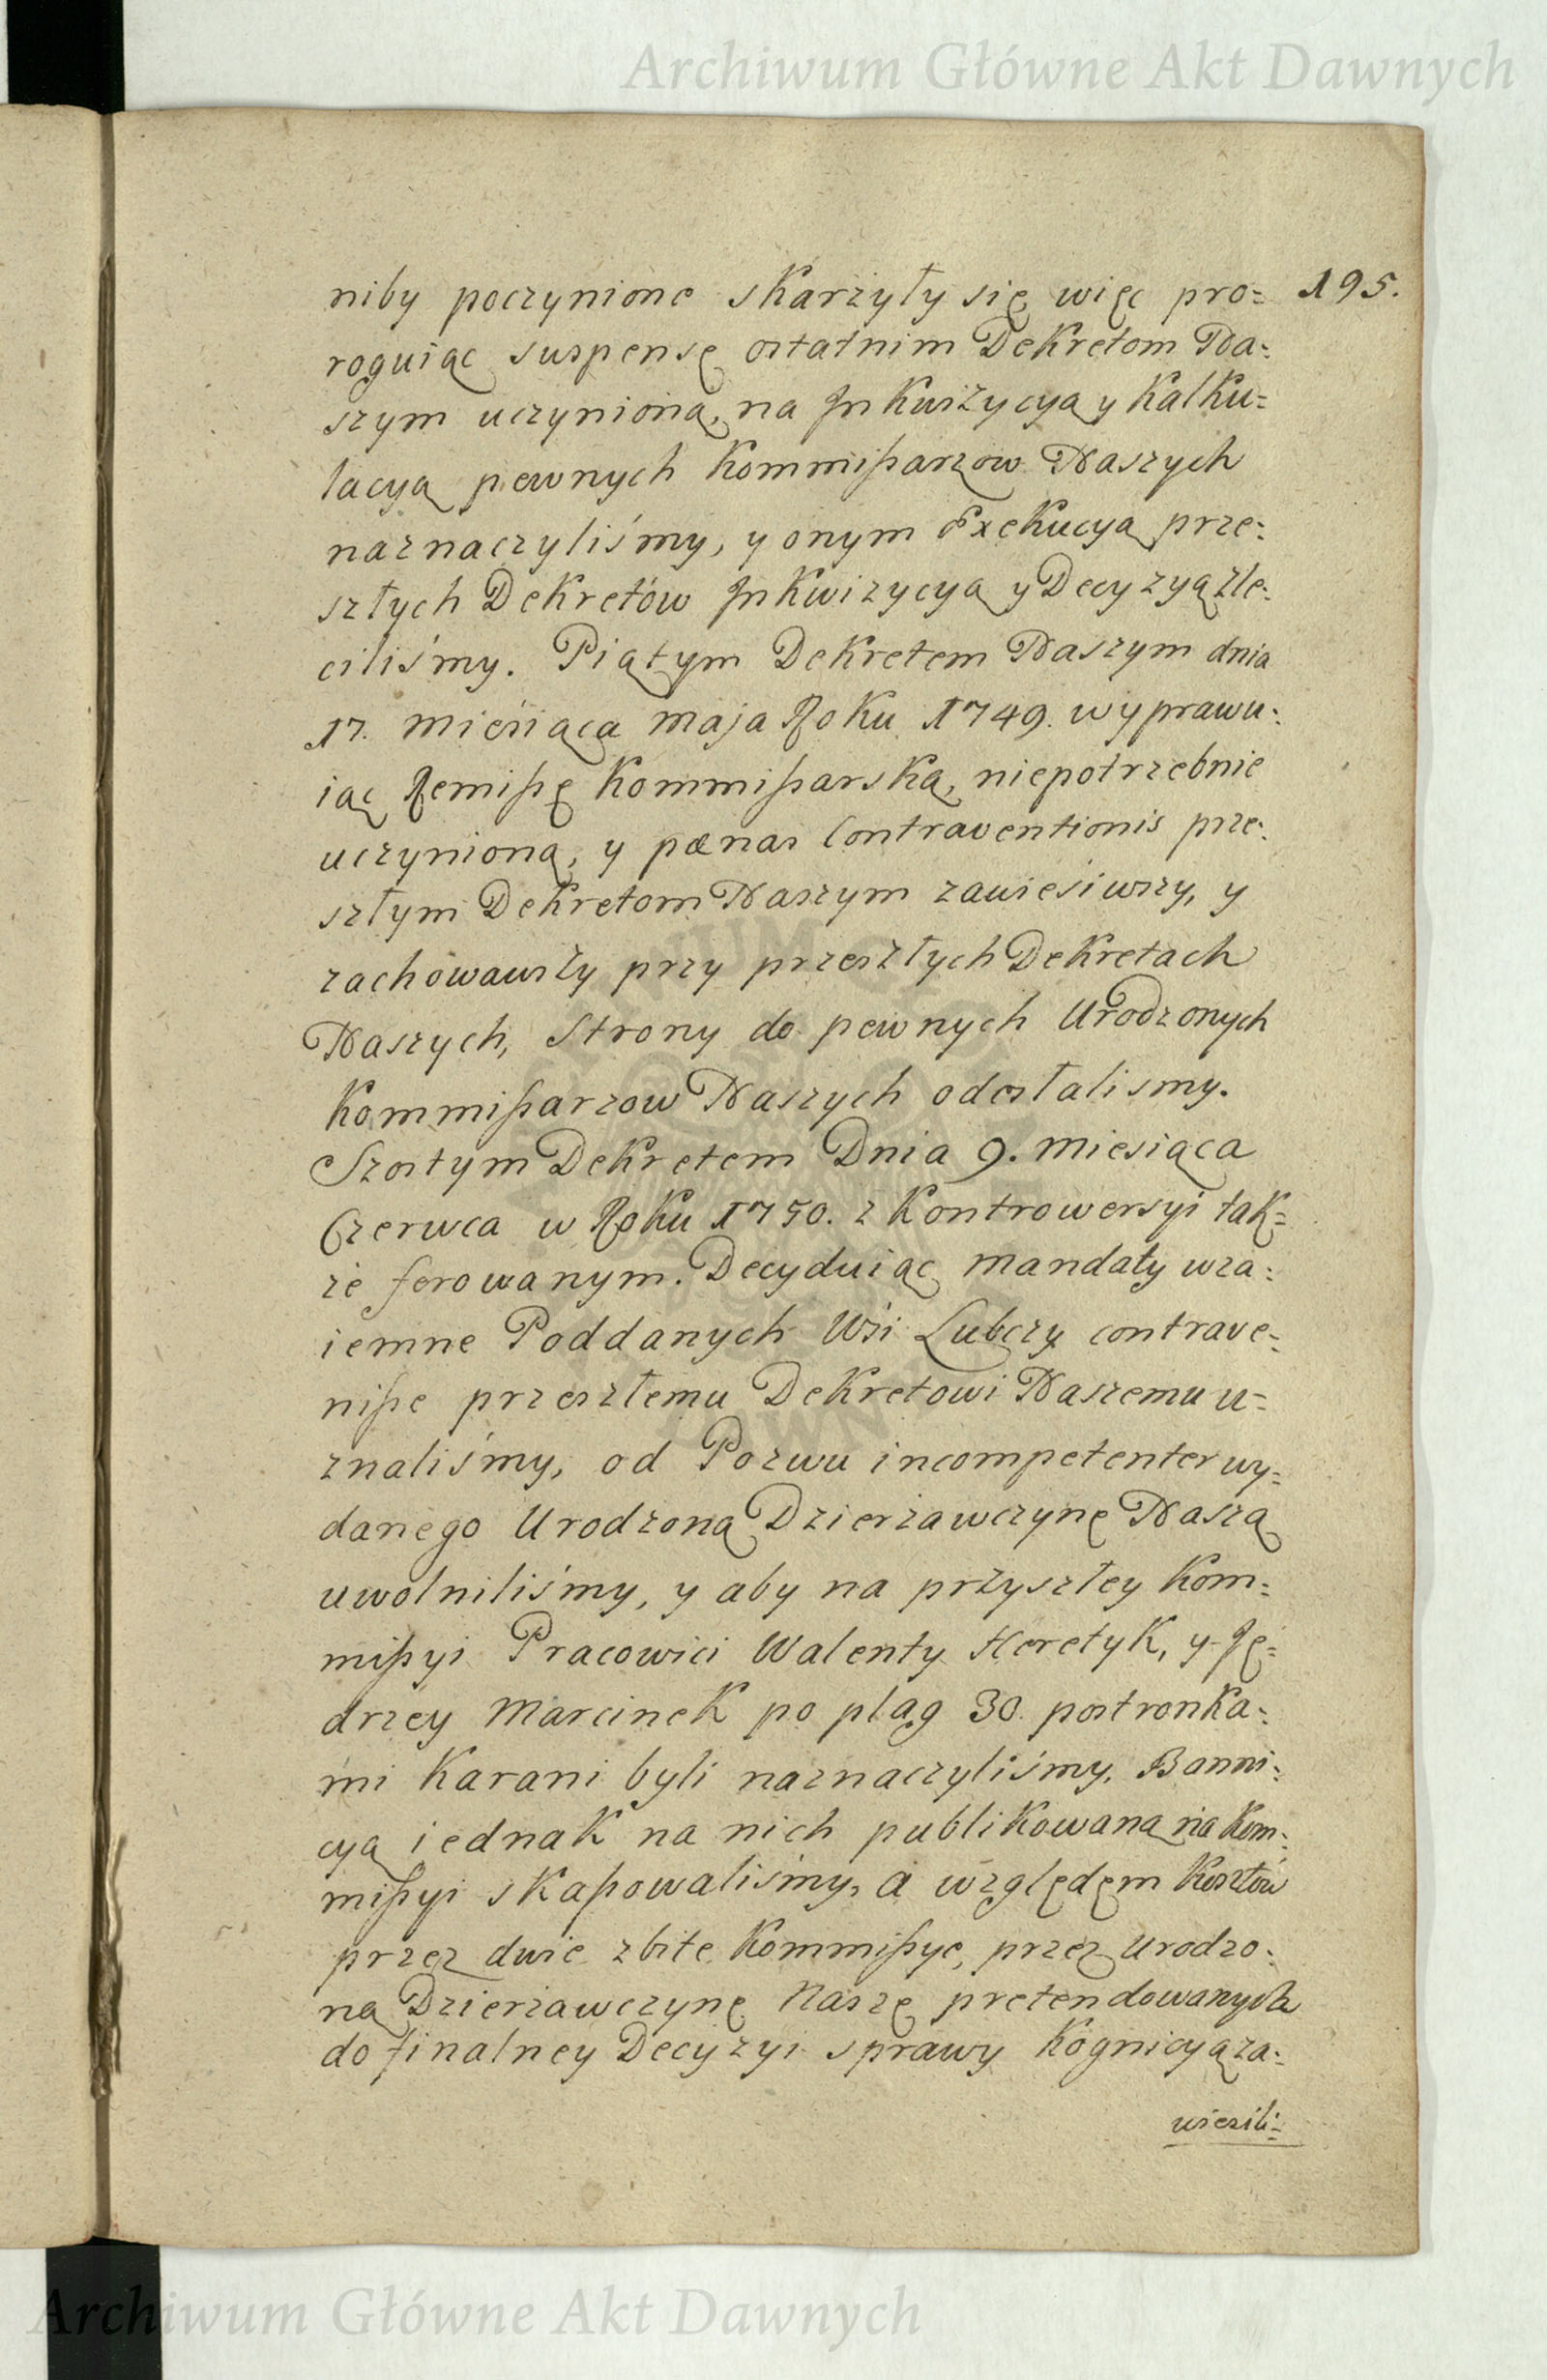 Archiwum Główne Akt Dawnych
niby poczynione skarżyły się więc pro= 195.
roguiąc suspensę ostatnim Dekretom Na=
szym uczynioną, na Jnkwizycyą y Kalku=
lacyą pewnych Kommißarzow Naszych
naznaczyliśmy, y onym Exekucyą prze=
szłych Dekretów Jnkwizycyą y Decyzyą zle=
ciliśmy. Piątym Dekretem Naszym dnia
17. Miesiąca Maja Roku 1749. wyprawu=
iąc Remißę Kommißarską, niepotrzebnie
uczynioną, y pænas Contraventionis prze=
szłym Dekretom Naszym zawiesiwszy, y
zachowawszy przy przeszłych Dekretach
Naszych, Strony do pewnych Urodzonych
Kommißarzow Naszych odesłalismy.
Szostym Dekretem Dnia 9. Miesiąca
Czerwca w Roku 1750. z Kontrowersyi tak=
że ferowanym. Decyduiąc Mandaty wza=
iemne Poddanych Wsi Lubczy contrave=
niße przeszłemu Dekretowi Naszemu u=
znaliśmy, od Pozwu incompetenter wy=
danego Urodzoną Dzierżawczynę Naszą
uwolniliśmy, y aby na przyszłey Kom=
mißyi Pracowici Walenty Heretyk, y Ję=
drzey Marcinek po plag 30. postronka=
mi Karani byli naznaczyliśmy. Banni=
cyą iednak na nich publikowaną na Kom=
mißyi skaßowaliśmy, a względem Kosztów
przez dwie zbite Kommißye, przez Urodzo=
ną Dzierżawczynę Naszę pretendowanych
do finalney Decyzyi sprawy Kognicyą za=
wiesili=
Archiwum Główne Akt Dawnych